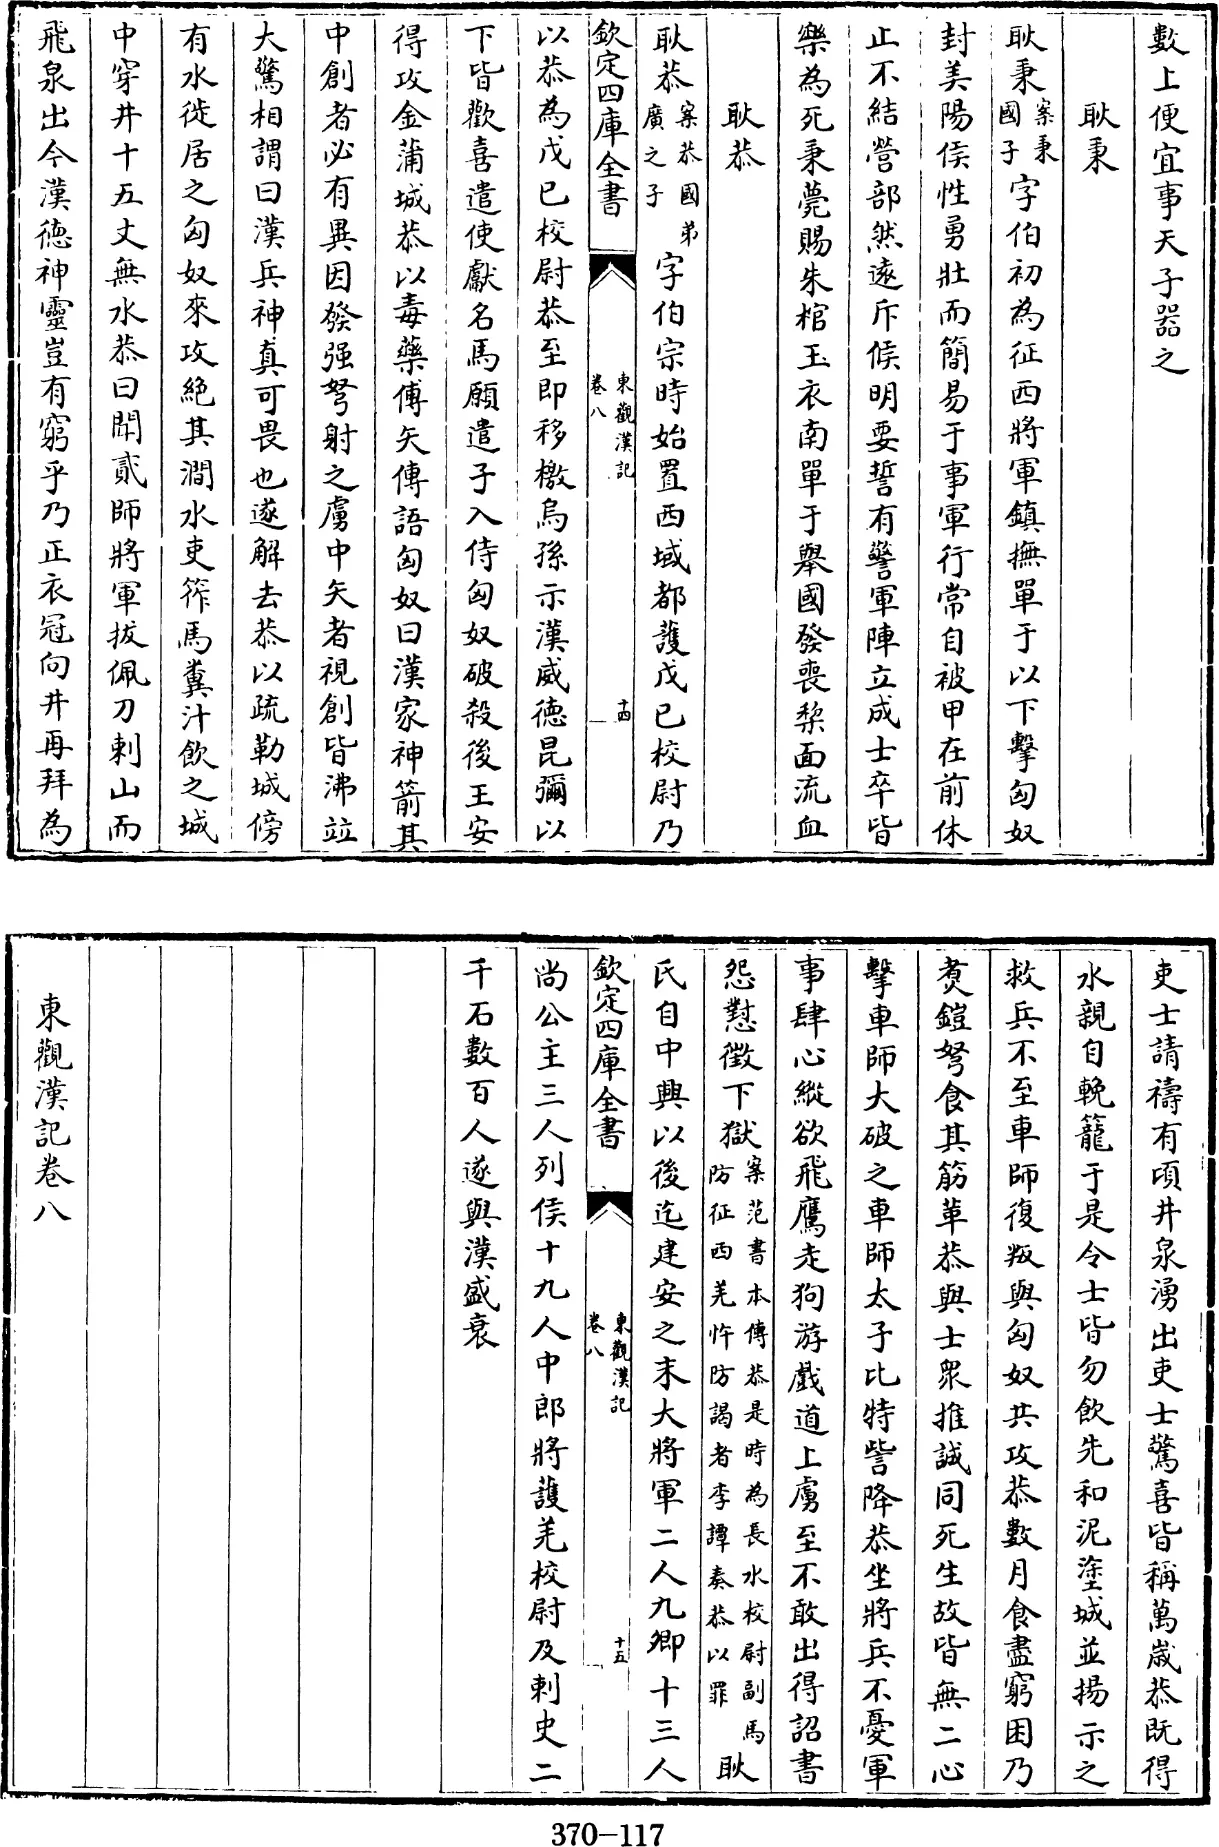 數上便宜事天子器之
耿秉
耿秉案秉國子字伯初為征西將軍鎮撫單于以下擊匈奴
封美陽侯性勇壯而簡易于事軍行常自被甲在前休
止不結營部然遠斥候明要誓有警軍陣立成士卒皆
樂為死秉薨賜朱棺玉衣南單于舉國發喪棃面流血
耿恭
耿恭案恭國弟廣之子字伯宗時始置西域都護戊已校尉乃
欽定四庫全書
東觀漢記
卷八
十四
以恭為戊已校尉恭至即移檄烏孫示漢威德昆彌以
下皆歡喜遣使獻名馬願遣子入侍匈奴破殺後王安
得攻金蒲城恭以毒藥傅矢傳語匈奴曰漢家神箭其
中創者必有異因發强弩射之虜中矢者視創皆沸竝
大驚相謂曰漢兵神真可畏也遂解去恭以疏勒城傍
有水徙居之匈奴來攻絶其澗水吏筰馬糞汁飲之城
中穿井十五丈無水恭曰聞貳師將軍拔佩刀刺山而
飛泉出今漢德神靈豈有窮乎乃正衣冠向井再拜為
吏士請禱有頃井泉湧出吏士驚喜皆稱萬歲恭既得
水親自輓籠于是令士皆勿飲先和泥塗城並揚示之
救兵不至車師復叛與匈奴共攻恭數月食盡窮困乃
煑鎧弩食其筋革恭與士衆推誠同死生故皆無二心
擊車師大破之車師太子比特訾降恭坐將兵不憂軍
事肆心縱欲飛鷹走狗游戲道上虜至不敢出得詔書
怨懟徵下獄案范書本傳恭是時為長水校尉副馬防征西羌忤防謁者李譚奏恭以罪耿
氏自中興以後迄建安之末大將軍二人九卿十三人
欽定四庫全書
東觀漢記
卷八
十五
尚公主三人列侯十九人中郎將護羌校尉及刺史二
千石數百人遂與漢盛衰
東觀漢記卷八
370-117